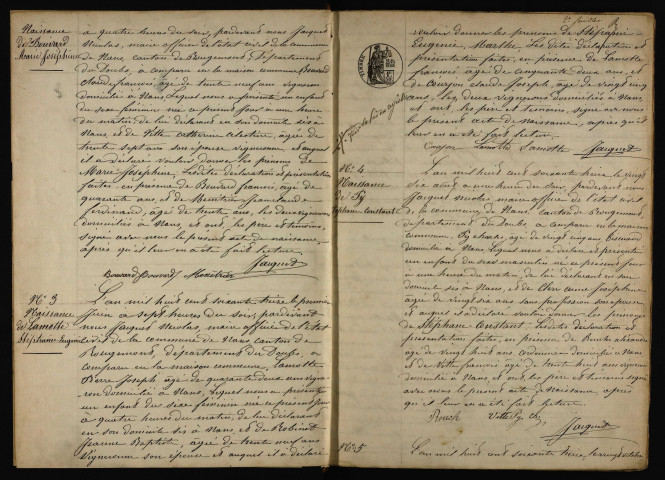 Naissance
de Bouvard
Marie Joséphine
à quatre heures du soir, pardevant nous Jacques
Nicolas, maire officier de l'état civil de la commune
de Nans, canton de Rougemont, Département
du Doubs, a comparu en la maison commune Bouvard
François, âgé de trente neuf ans vigneron
domicilié à Nans, Lequel nous a présenté un enfant
du sexe féminin né ce
du matin, de lui déclarant en son domicile sis à
Nans, et de Vitte Catherine Célestine, âgée de
trente sept ans son épouse vigneronne et auquel
il a déclaré vouloir donner les prénoms de
Marie Joséphine, Lesdites déclaration et présentation
faites, en présence de Bouvard François, âgé de
quarante ans, et de
Ferdinand, âgé de trente ans, les deux vignerons
domiciliés à Nans, et ont, les père et témoins,
signé avec nous le présent acte de naissance,
après qu'il leur en a été fait lecture.
Bouvard Bouvard
N° 3
Naissance
de Lamotte
Stéphanie Eugénie
L'an mil huit cent soixante treize le premier
Juin à sept heures du soir, pardevant
nous Jacques Nicolas, maire officier de l'état
civil de la commune de Nans canton de
Rougemont, département du Doubs, a
comparu en la maison commune, Lamotte
Pierre Joseph âgé de quarante deux ans vigne-
ron domicilié à Nans, Lequel nous a présenté
un enfant du sexe féminin né ce présent jour
à quatre heures du matin, de lui déclarant
en son domicile sis à Nans, et de Robinot
Jeanne Baptiste, âgée de trente neuf ans
vigneronne son épouse et auquel il a déclaré
vouloir donner les prénoms de Stéphanie
Eugénie Marthe, Lesdites déclaration et
présentation faites, en présence de Lamotte
François âgé de cinquante deux ans, et
de Claude Joseph, âgé de vingt cinq
ans, les deux vignerons domiciliés à Nans,
et ont, les père et témoins, signé avec nous
le présent acte de naissance, après qu'il
leur en a été fait lecture.
Lamotte Lamotte
N° 4
Naissance
de Py
Stéphane Constant
L'an mil huit cent soixante treize le vingt
à une heure du soir, pardevant nous
Jacques Nicolas maire officier de l'état civil
de la commune de Nans, canton de Rougemont,
département du Doubs, a comparu en la maison
commune, Py âgé de vingt cinq ans
domicilié à Nans, Lequel nous a déclaré et présenté
un enfant du sexe masculin né ce présent jour
à une heure du matin, de lui déclarant en son
domicile sis à Nans, et de Joséphine
âgée de vingt six ans sans profession son épouse
et auquel il a déclaré vouloir donner les prénoms
de Stéphane Constant, Lesdites déclaration et
présentation faites, en présence de
âgé de vingt huit ans domicilié à Nans
et de Vitte François âgé de trente huit ans vigneron
domicilié à Nans, et ont les père et témoins signé
avec nous le présent acte de Naissance, après
qu'il leur en a été fait lecture.
Vitte Py
N° 5
L'an mil huit cent soixante treize, le vingt